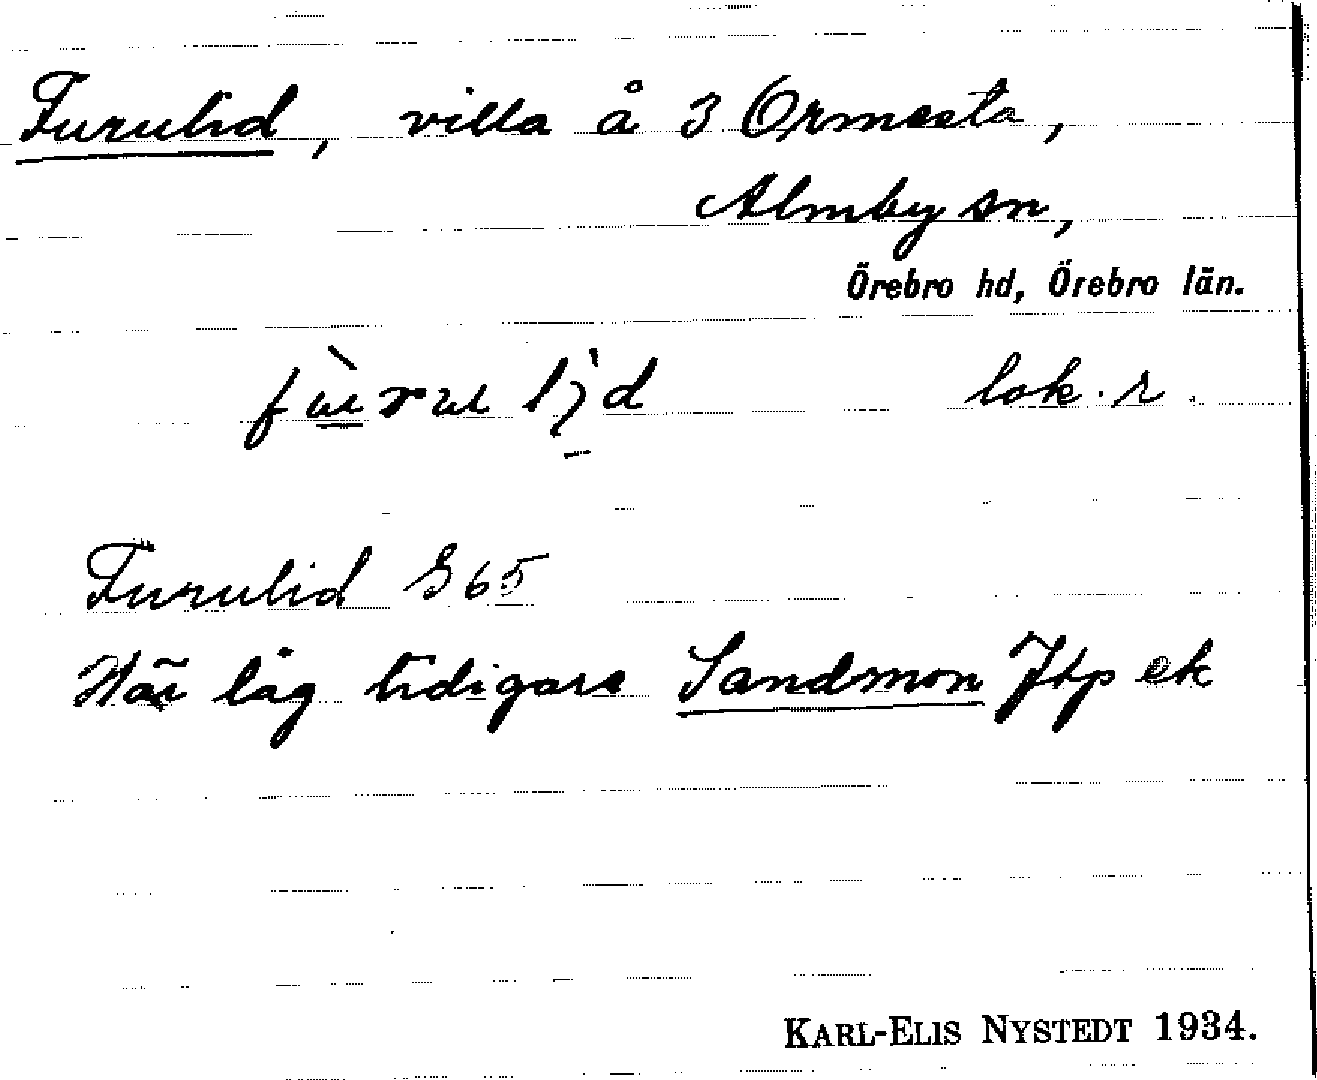 Furulid, villa å 3 Ormesta,
Almby sn,
Örebro hd, Örebro län.
lok. r.
Furulid G 65
Här låg tidigare Sandmon Jtp ek
KARL-ELIS NYSTEDT 1934.